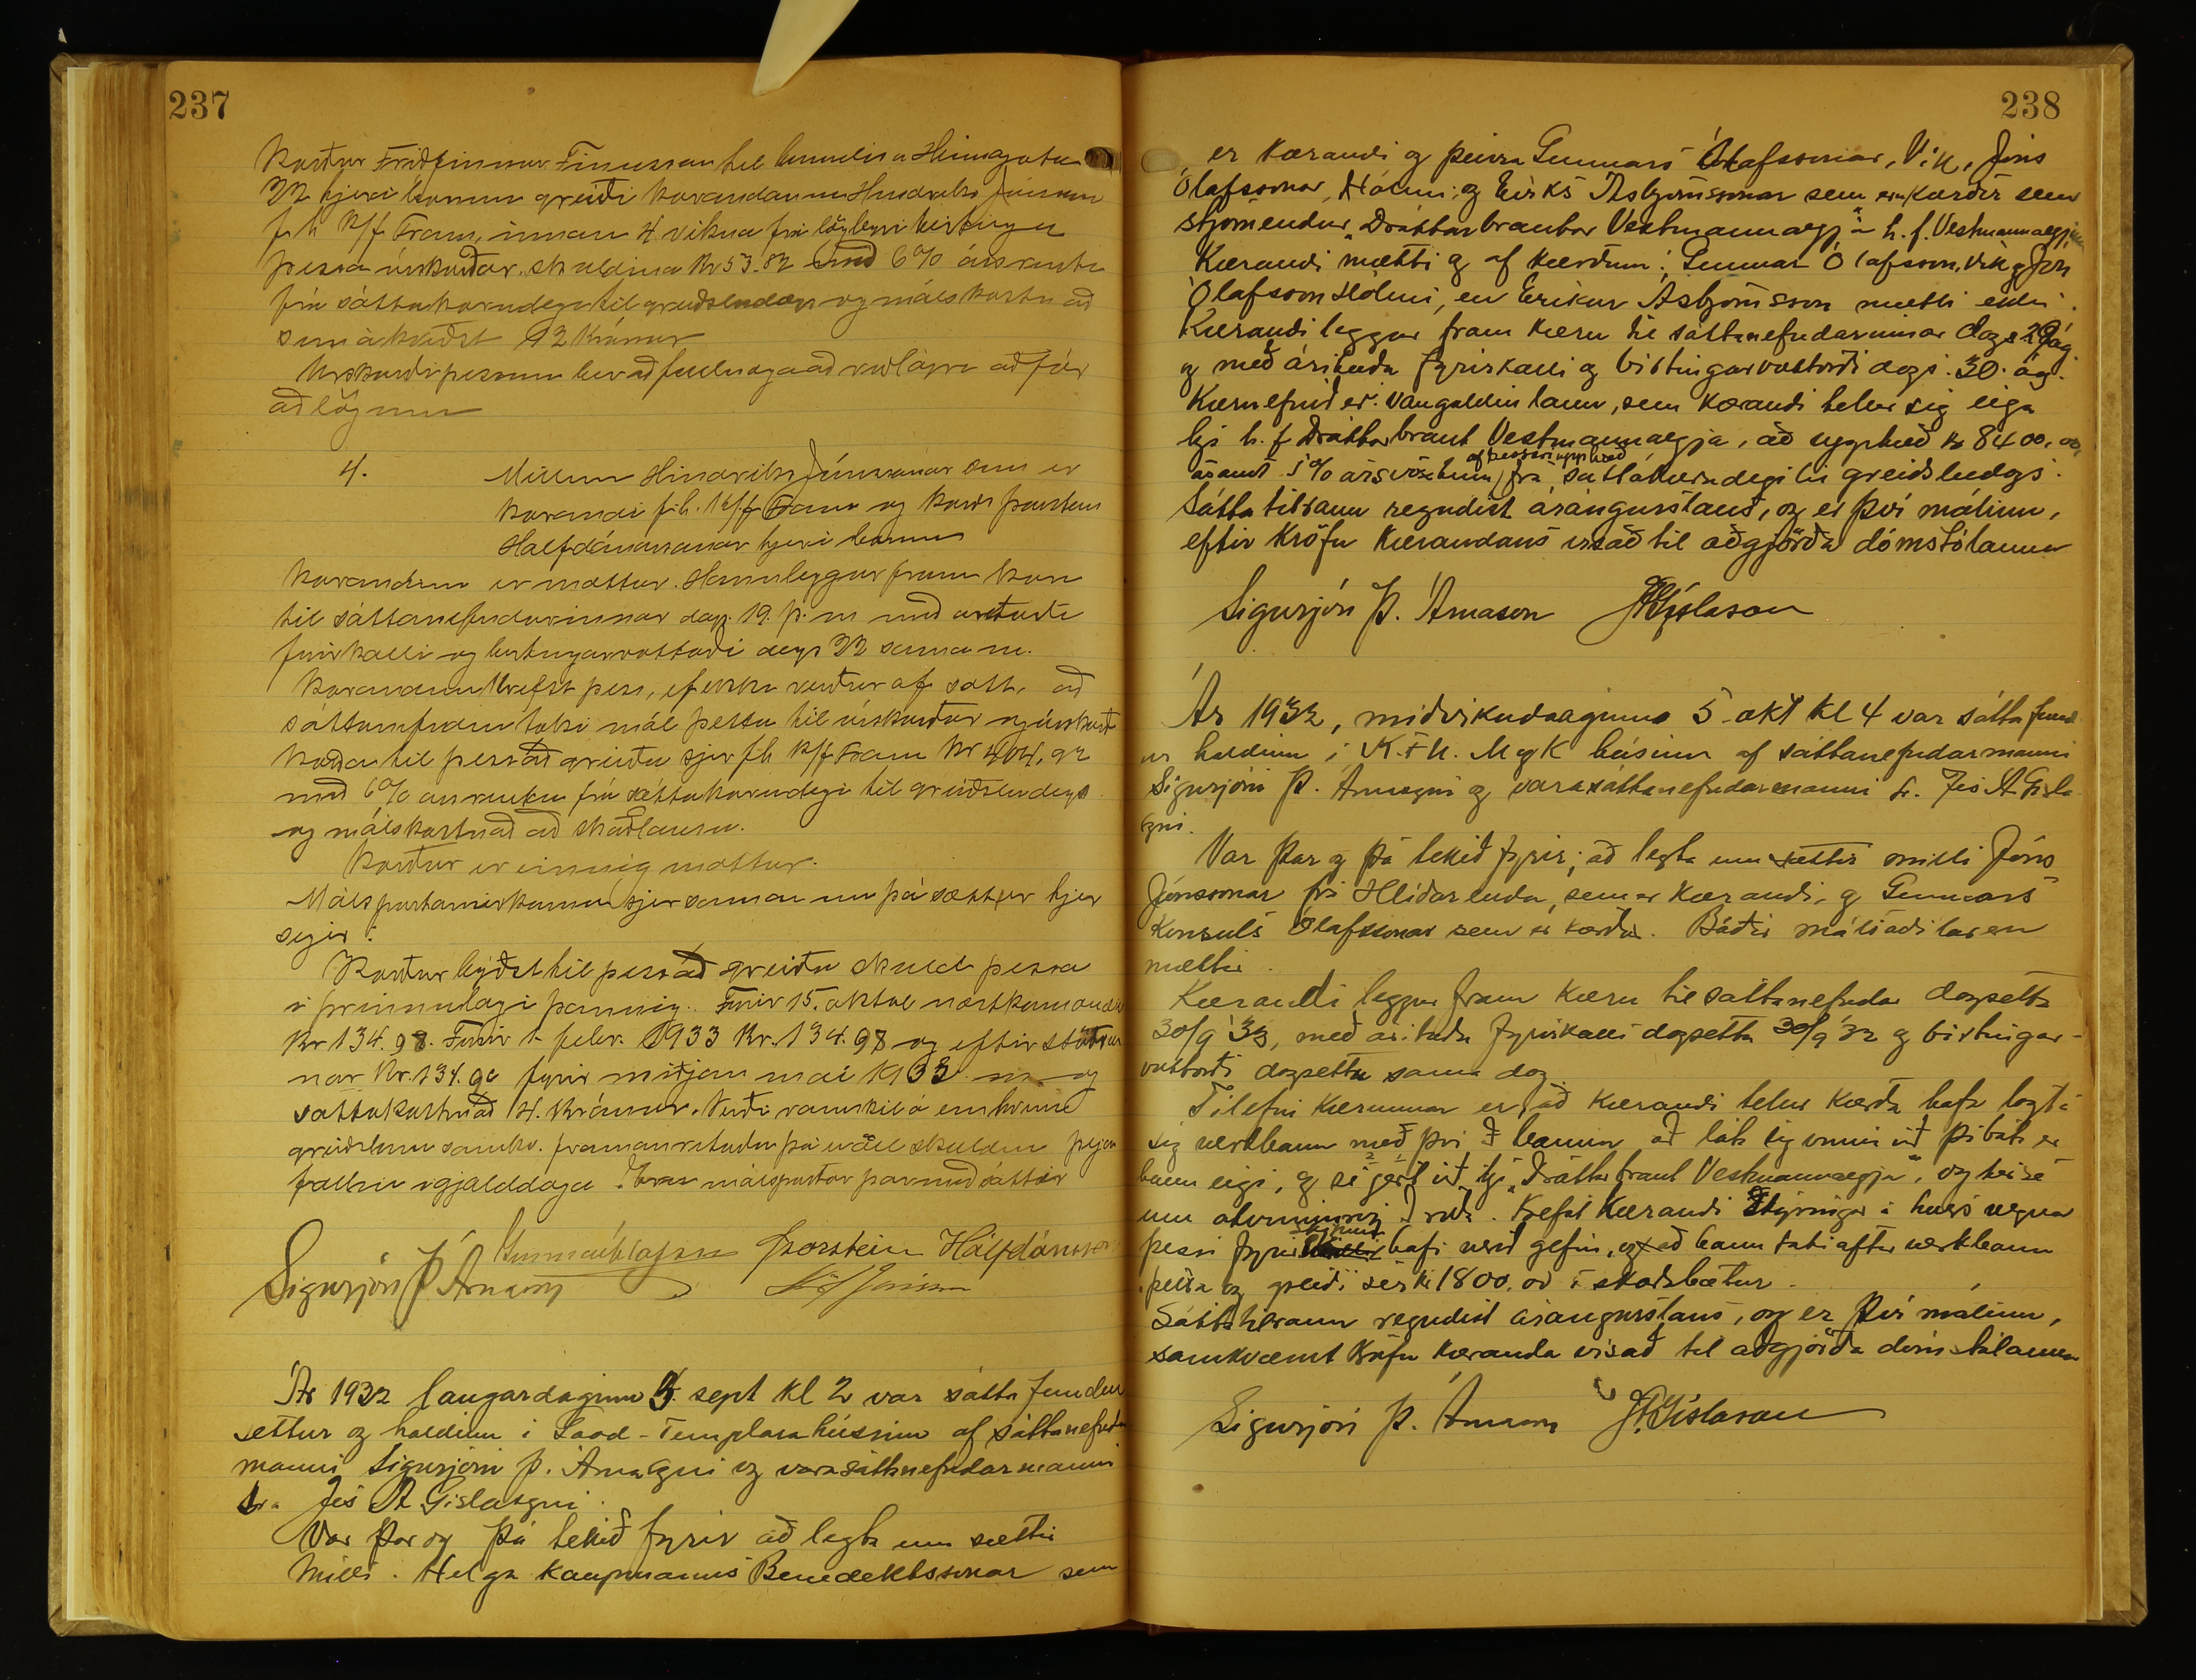 237
Kærður Friðfinnur Finnsson til heimilis a Heimagata
22 hjer í bænum greiði kærandanum Hindriks Jónssonar
f. h. K/f. Fram, innan 4 vikna frá löglegri birtingu
þessa úrskurðar, skuldina Kr 53.82 með 6% ársvexti
frá sáttakærudegi til greiðsludags og málskostnað
sem ákveðst 12 Krónur
Úrskurði þessum ber að fullnægja að viðlagðri aðför
að lögum
4. Millum Hindriks Jónssonar sem er
kærandi f. h. K/f. Fram og kærðs Þorsteins
Halfdánarsonar hjer í bænum
Kærandinn er mættur. Hann leggur fram kæru
til sáttanefndarinnar dags. 19. þ. m með árituðu
fyrirkalli og birtingarvottorði dags 22 sama m.
Kærandinn krefst þess, ef ekki verður af sátt, að
sáttanefndin taki mál þetta til úrskurðar og úrskurði
kærðan til þess að greiða sjer f h K/f Fram Kr 404,92
með 6% ársvexti frá sáttakærudegi til greiðsludags
og málskostnað að skaðlausu.
Kærður er einnig mættur.
Málspartarnir koma sjer saman um þá sátt er hjer
segir:
Kærður býðst til þess að greiða skuld þessa
í þrennu lagi þannig. Fyrir 15. október næstkomandi
Kr 134.98. Fyrir 1. febr. 1933 Kr. 134.98 og eftirstöðvar
nar Kr. 134.96 fyrir miðjan mai 1933 og
sáttakostnað 4. Krónur. Verði vanskil á einhverri
greiðslunni samkv. framanrituðu þá er öll skuldin þegar
fallin í gjalddaga. Eru málspartar þar með sáttir
Gunnar Ólafsson Þorsteinn Hálfdánsson
Sigurjón Þ. Árnason
Ár 1932 laugardaginn 3. sept kl 2 var sáttafundur
settur og haldinn i Good-Templarahúsinu af sáttanefndar
manni Sigurjóni Þ. Árnasyni og varasáttanefndarmanni
hr. Jes A Gíslasyni.
Var þar og þá tekið fyrir að leyta um sættir
milli. Helga kaupmanns Benediktssonar sem
238
er kærandi og þeirra Gunnars Ólafssonar, Vík, Jóns
Ólafssonar, Hólmi, og Eiríks Ásbjörnssonar sem eru kærðir sem
stjórnendur "Dráttarbrautar Vestmannaeyja" h. f. Vestmannaeyjum
Kærandi mætti og af kærðum: Gunnar Ólafsson, Vík og Jón
Ólafsson Hólmi, en Eiríkur Ásbjörnsson mætti ekki.
Kærandi leggur fram kæru til sáttanefndarinnar dags 29 ág.
og með árituðu fyrirkalli og birtingarvottorði dags. 30. ág.
Kæruefnið er: vangoldin laun, sem kærandi telur sig eiga
hjá h. f Dráttarbraut Vestmannaeyja, að upphæð kr 8400,00,
ásamt 5% ársvöxtum af þessari upphæð frá sáttakærudegi til greiðsludags.
Sáttatilraun reyndist árangurslaus, og er því málinu,
eftir kröfu kærandans vísað til aðgjörða dómstólanna
Sigurjón Þ. Árnason JAGíslason
Ár 1932, miðvikudaginn 5. okt kl 4 var sáttafund
ur haldinn i K.F.U. M og K húsinu af sáttanefndarmanni
Sigurjóni Þ. Árnasyni og varasáttanefndarmanni hr. Jes A Gísla
syni.
Var þar og þá tekið fyrir, að leyta um sættir milli Jóns
Jónssonar frá Hlíðarenda, sem er kærandi, og Gunnars
Konsuls Ólafssonar sem er kærður. Báðir málsaðilar eru
mættir.
Kærandi leggur fram kæru til sáttanefndar dagsetta
30/9 '33, með árituðu fyrirkalli dagsettu 30/9 '32 og birtingar-
vottorði dagsettu sama dag
Tilefni kærunnar er, að kærandi telur kærða hafa lagt á
sig verkbann með því að banna að láta sig vinna við þá báta er
hann eigi, og sé gert við hjá "Dráttarbraut Vestmannaeyja", og hér sé
um atvinnuróg að ræða. Krefst kærandi skýringar á hvers vegna
þessi fyrirskipun hafi verið gefin, og að hann taki aftur verkbann
þetta og greiði sér kr 1800.00 í skaðabætur.
Sáttatilraun reyndist árangurslaus, og er því málinu,
samkvæmt kröfu kæranda vísað til aðgjörða dómstólanna
Sigurjón Þ. Árnason JAGíslason